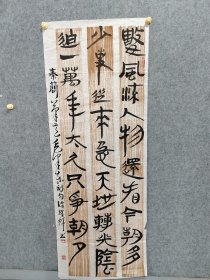 數風流人物還看今朝多
少事從来急天地轉光陰
迫一萬年太久只争朝夕
秦簡